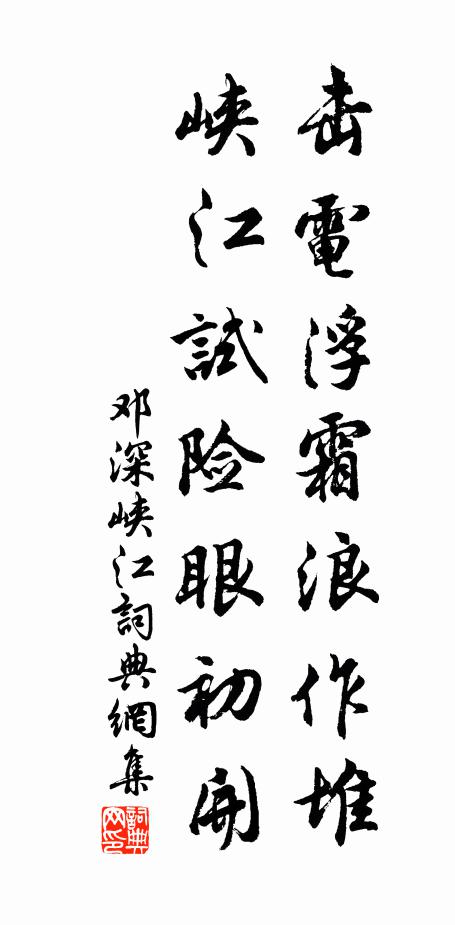 击電浮霜浪作堆
峡江試险眼初開
邓深峡江詞典網集
詞典网印